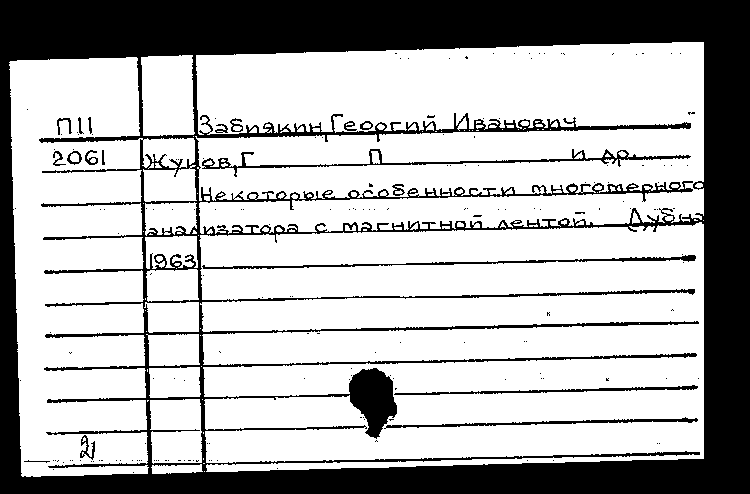 П11 Забиякин, Георгий Иванович
2061 Жуков, Г П и др.
Некоторые особенности многомерного
анализатора с магнитной лентой. Дубна
1963.
21